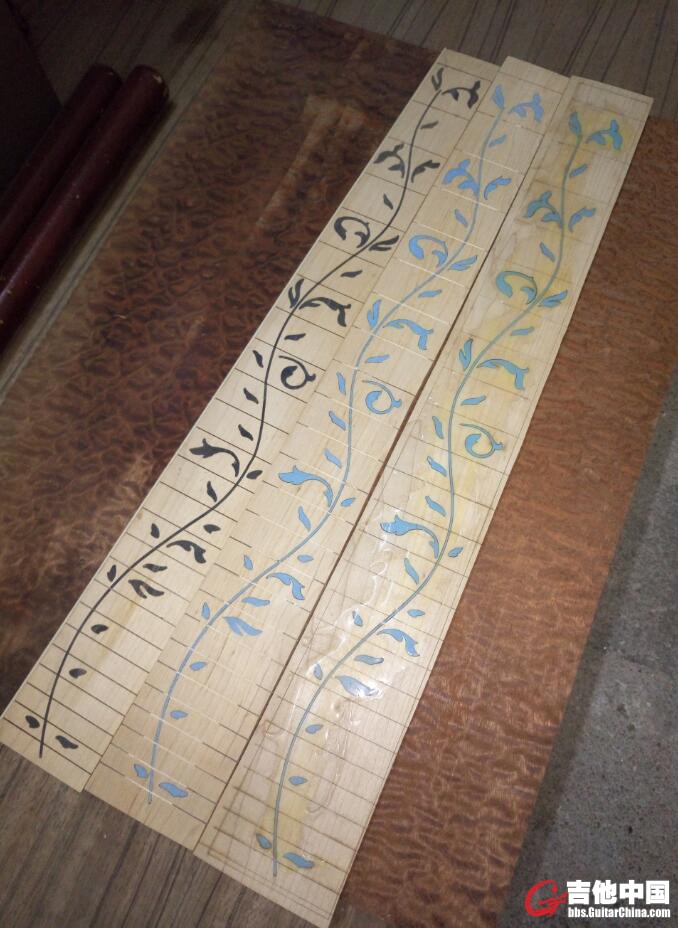 吉他中国
bbs.GuitarChina.com